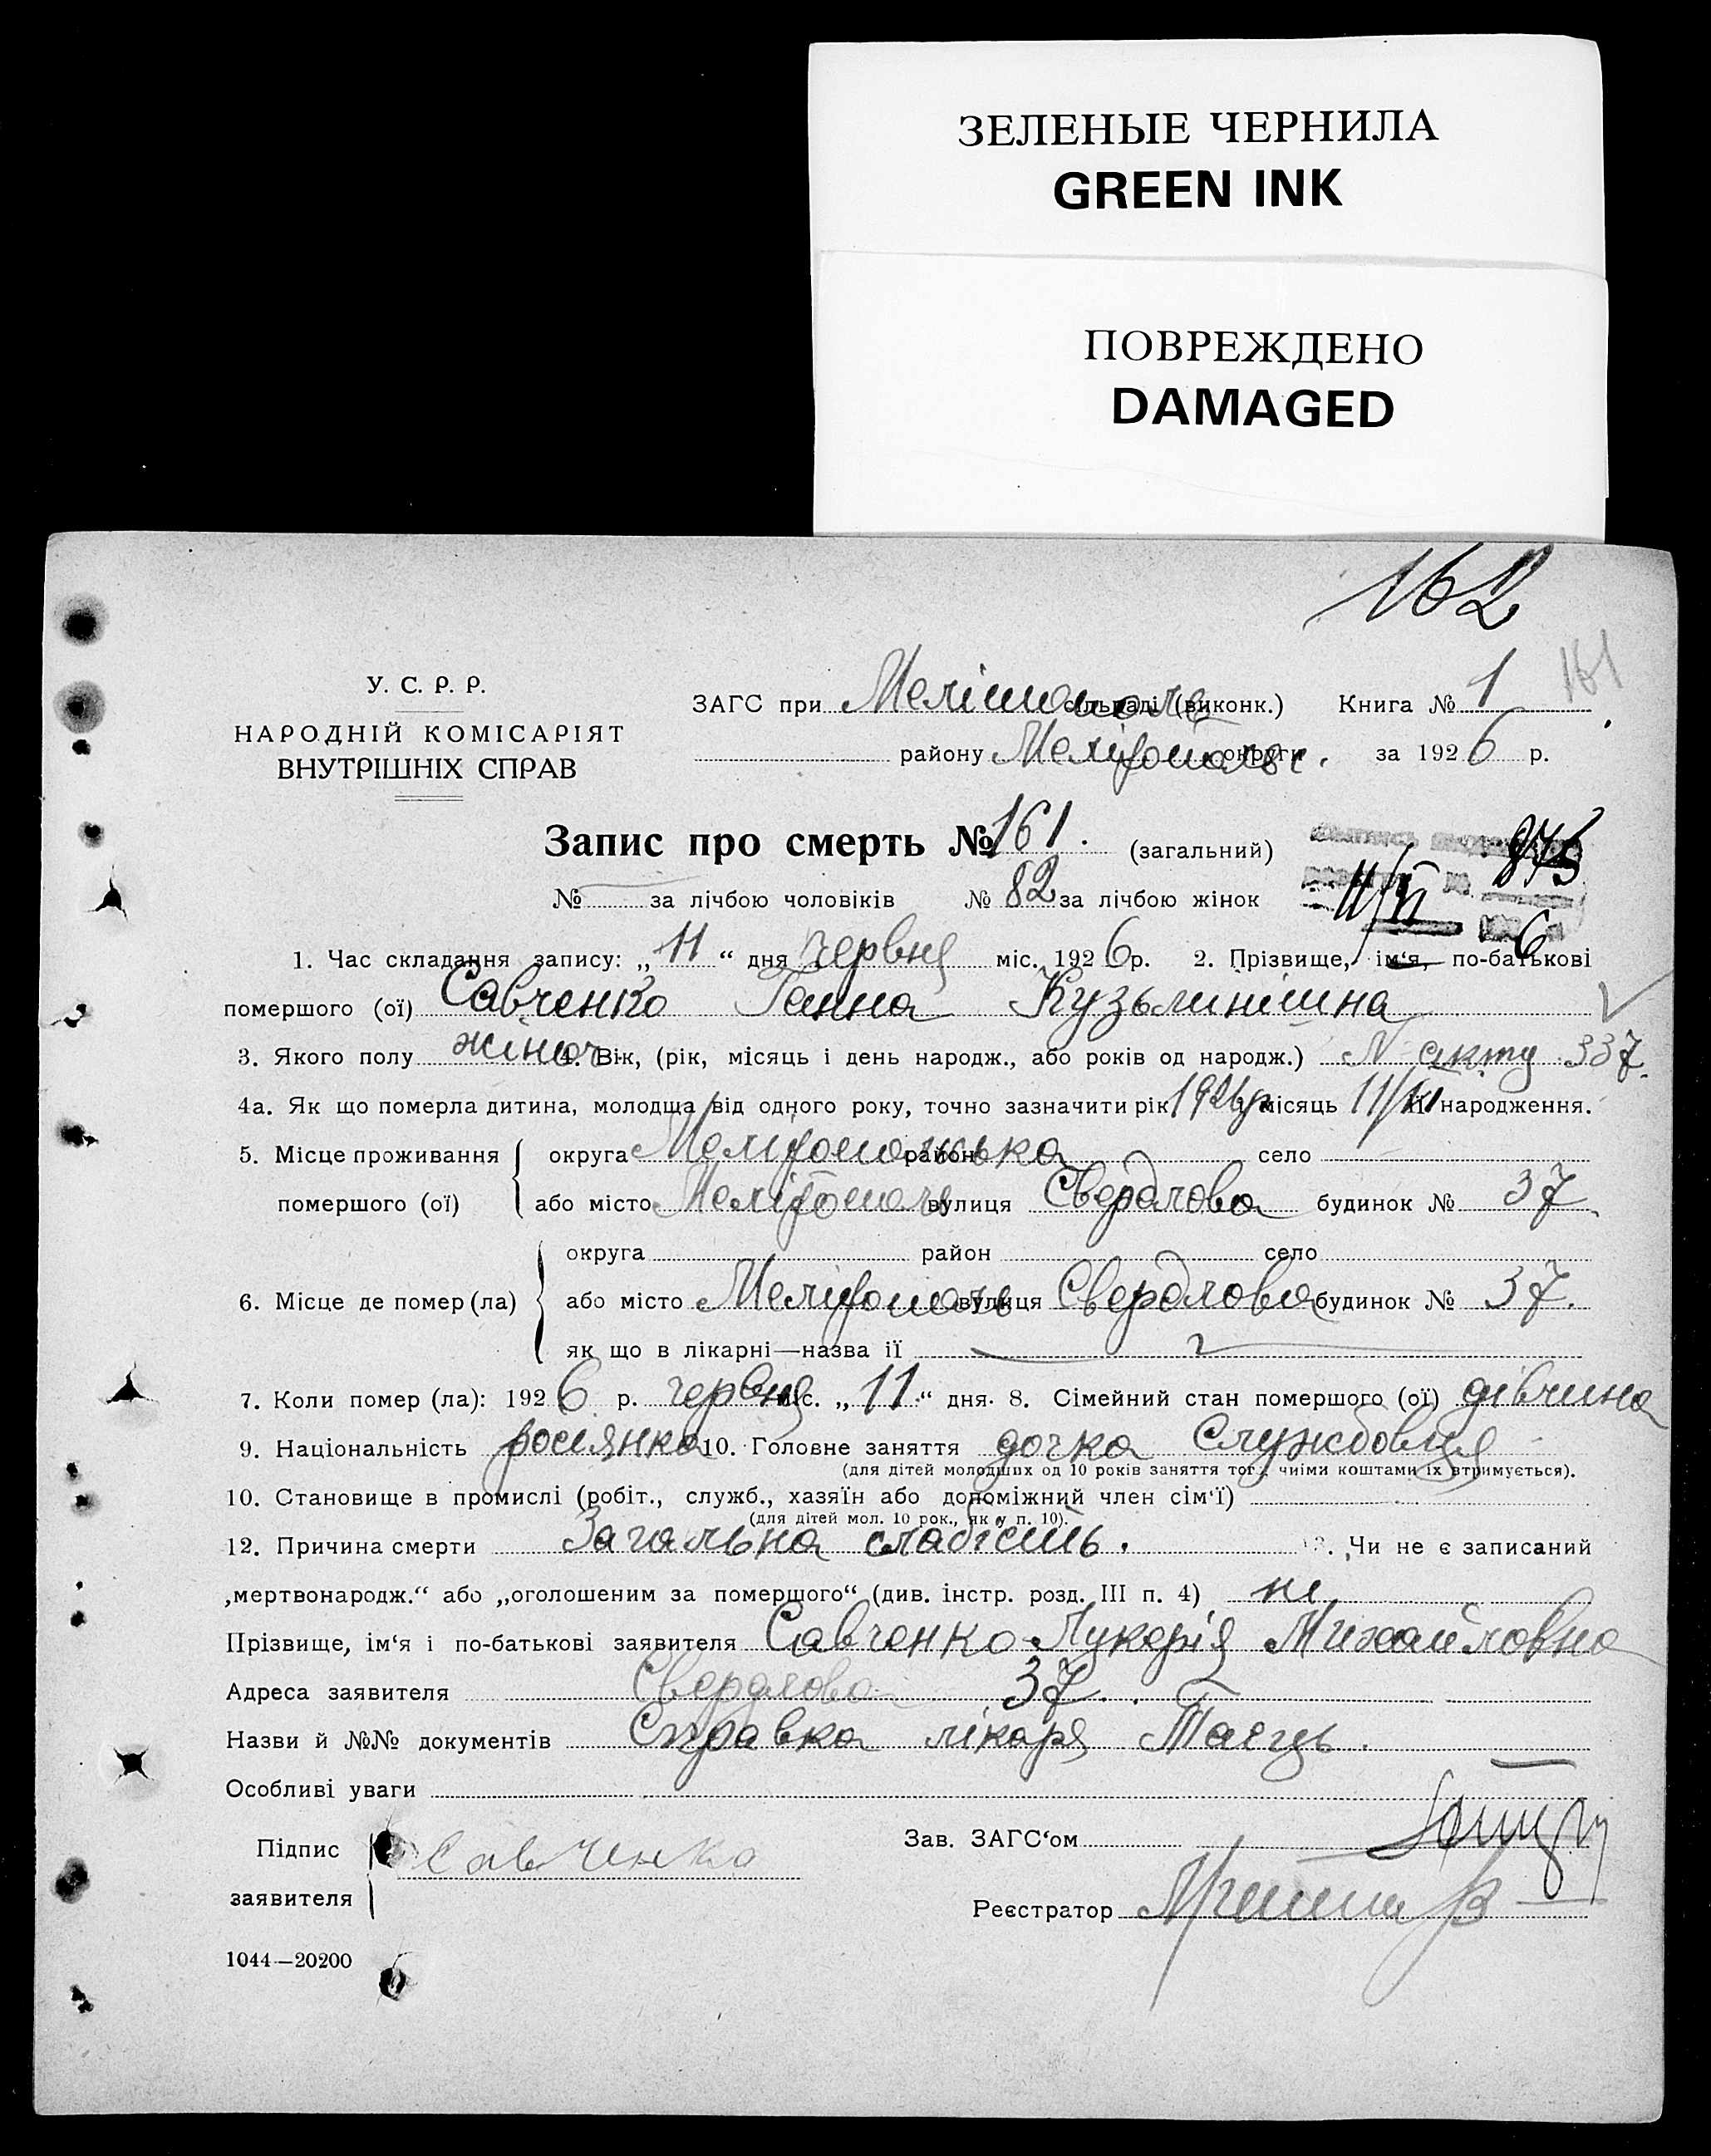 ЗЕЛЕНЫЕ ЧЕРНИЛА
GREEN INK
ПОВРЕЖДЕНО
DAMAGED
162
161
У. С. Р. Р.
НАРОДНІЙ КОМІСАРІЯТ
ВНУТРІШНІХ СПРАВ
ЗАГС при Мелітополь сільраді (виконк.) Книга № 1
району Мелітопольс. округи за 1926 р.
Запис про смерть № 161. (загальний)
№ — за лічбою чоловіків № 82 за лічбою жінок
11/VI 6
1. Час складання запису: „11“ дня червня міс. 1926 р. 2. Прізвище, ім‘я, по-батькові
помершого (ої) Савченко Ганна Кузьминішна
3. Якого полу жіноч. 4. Вік, (рік, місяць і день народж., або років од народж.) N акту 337.
4а. Як що померла дитина, молодща від одного року, точно зазначити рік 1926р місяць 11/III її народження.
5. Місце проживання округа Мелітопольська район село
помершого (ої) або місто Мелітополь вулиця Свердлова будинок № 37
округа район село
6. Місце де помер (ла) або місто Мелітополь вулиця Свердлова будинок № 37.
як що в лікарні—назва її —
7. Коли помер (ла): 1926 р. червня міс. „11“ дня. 8. Сімейний стан помершого (ої) дівчина
9. Національність росіянка 10. Головне заняття дочка Службовця
(для дітей молодших од 10 років заняття того, чиїми коштами їх втримується).
10. Становище в промислі (робіт., служб., хазяїн або допоміжний член сім‘ї)
(для дітей мол. 10 рок., як у п. 10).
12. Причина смерти Загальна слабість. 13. Чи не є записаний
„мертвонародж.“ або „оголошеним за помершого“ (див. інстр. розд. III п. 4) ні
Прізвище, ім‘я і по-батькові заявителя Савченко Лукерія Михайловна
Адреса заявителя Свердлова 37.
Назви й №№ документів Справка лікаря
Особливі уваги
Підпис Савченко Зав. ЗАГС‘ом
заявителя
Реєстратор
1044—20200